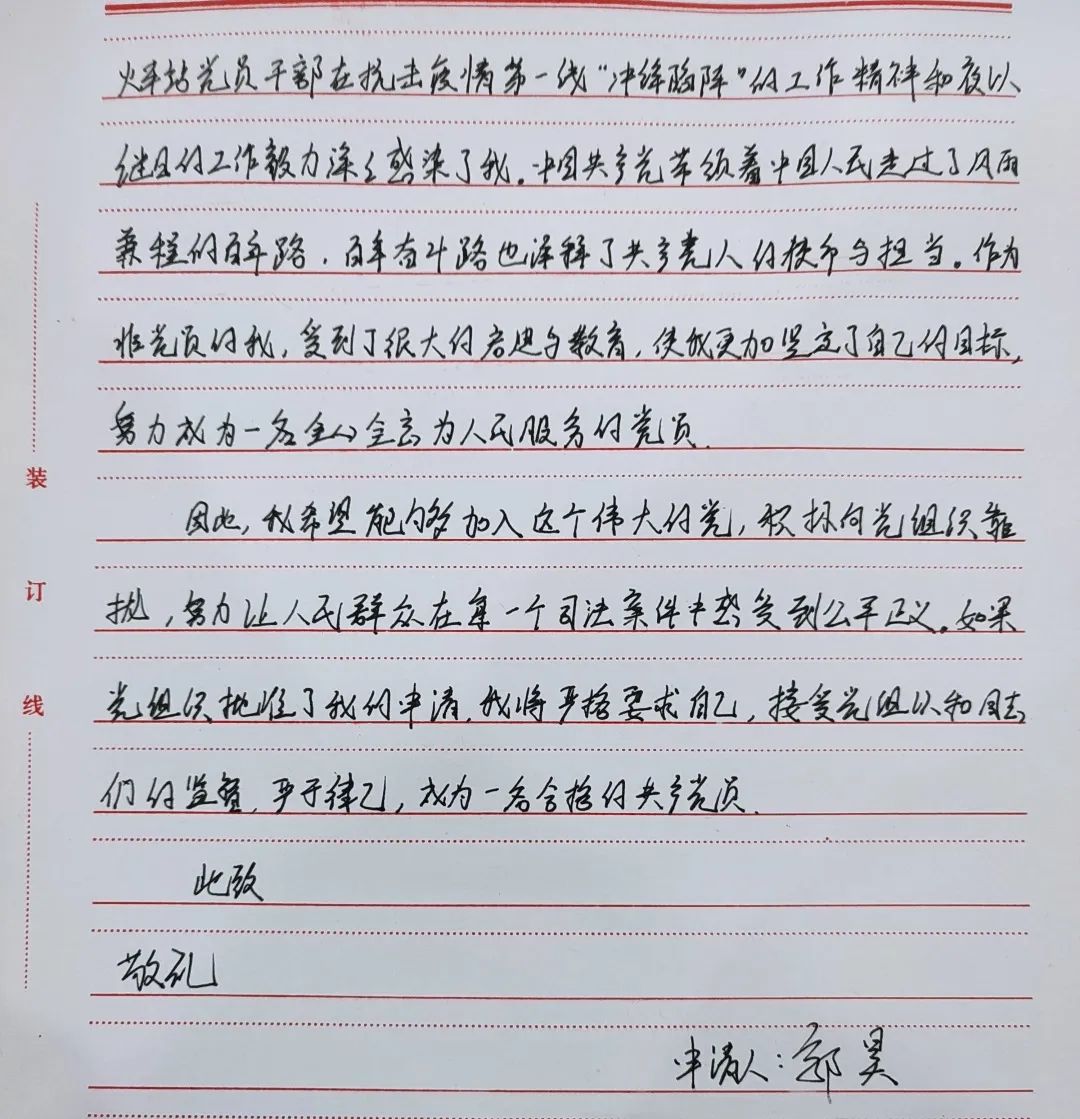 火车站党员干部在抗击疫情第一线“冲锋陷阵”的工作精神和夜以
继日的工作毅力深深感染了我。中国共产党带领着中国人民走过了风雨
兼程的百年路，百年奋斗路也诠释了共产党人的使命与担当。作为
非党员的我，受到了很大的启迪与教育，使我更加坚定了自己的目标，
努力成为一名全心全意为人民服务的党员.
因此，我希望能够加入这个伟大的党，积极向党组织靠
拢，努力让人民群众在每一个司法案件中感受到公平正义。如果
党组织批准了我的申请，我将严格要求自己，接受党组织和同志
们的监督，严于律己，成为一名合格的共产党员.
此致
敬礼
申请人：郭昊
装
订
线